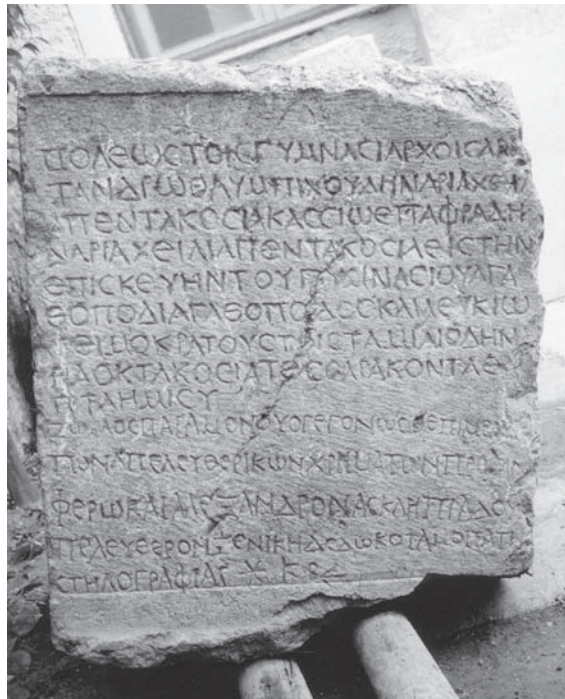 ΠΟΛΕΩϹΤΟΙϹΓΥΜΝΑϹΙΑΡΧΟΙϹΑΛΕ
ΞΑΝΔΡΩΟΛΥΜΠΙΧΟΥΔΗΝΑΡΙΑΧΕΙΛΙ
ΑΠΕΝΤΑΚΟϹΙΑΚΑϹϹΙΩΕΠΑΦΡΑΔΗ
ΝΑΡΙΑΧΕΙΛΙΑΠΕΝΤΑΚΟϹΙΑΕΙϹΤΗΝ
ΕΠΙϹΚΕΥΗΝΤΟΥΓΥΜΝΑϹΙΟΥΑΓΑ
ΘΟΠΟΔΙΑΓΑΘΟΠΟΔΟϹΚΑΙΛΕΥΚΙΩ
ΤΕΙΜΟΚΡΑΤΟΥϹΤΟΙϹΤΑΜΙΑΙΟΔΗΝ
ΡΙΑΟΚΤΑΚΟϹΙΑΤΕϹϹΑΡΑΚΟΝΤΑΕ
ΠΤΑΗΜΙϹΥ
ΖΩΙΛΟϹΠΑΡΑΜΟΝΟΥΟΓΕΓΟΝΩϹΕΠΙΜΕΛ
ΤΩΝΑΠΕΛΕΥΘΕΡΙΚΩΝΧΡΗΜΑΤΩΝΠΡΟϹΑΝ
ΦΕΡΩΚΑΙΑΛΕΞΑΝΔΡΟΝΑϹΚΛΗΠΙΑΔΟΥ
ΠΕΛΕΥΘΕΡΟΝΞΕΝΙΚΗΔΕΔΩΚΟΤΑΜΟΙ
ϹΤΗΛΟΓΡΑΦΙΑϹ